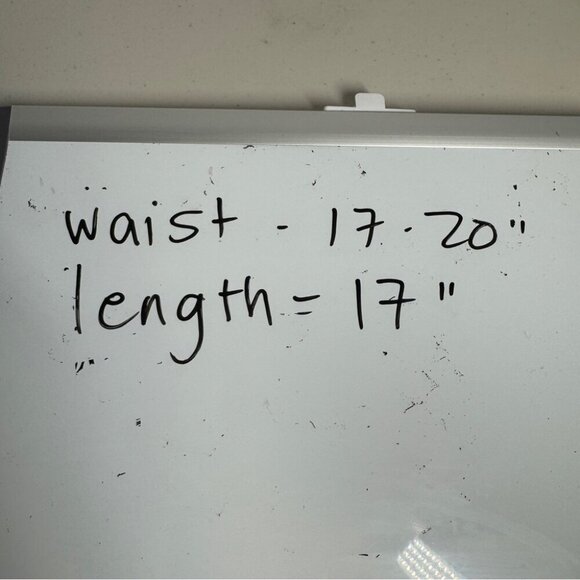 waist - 17-20"
length = 17"